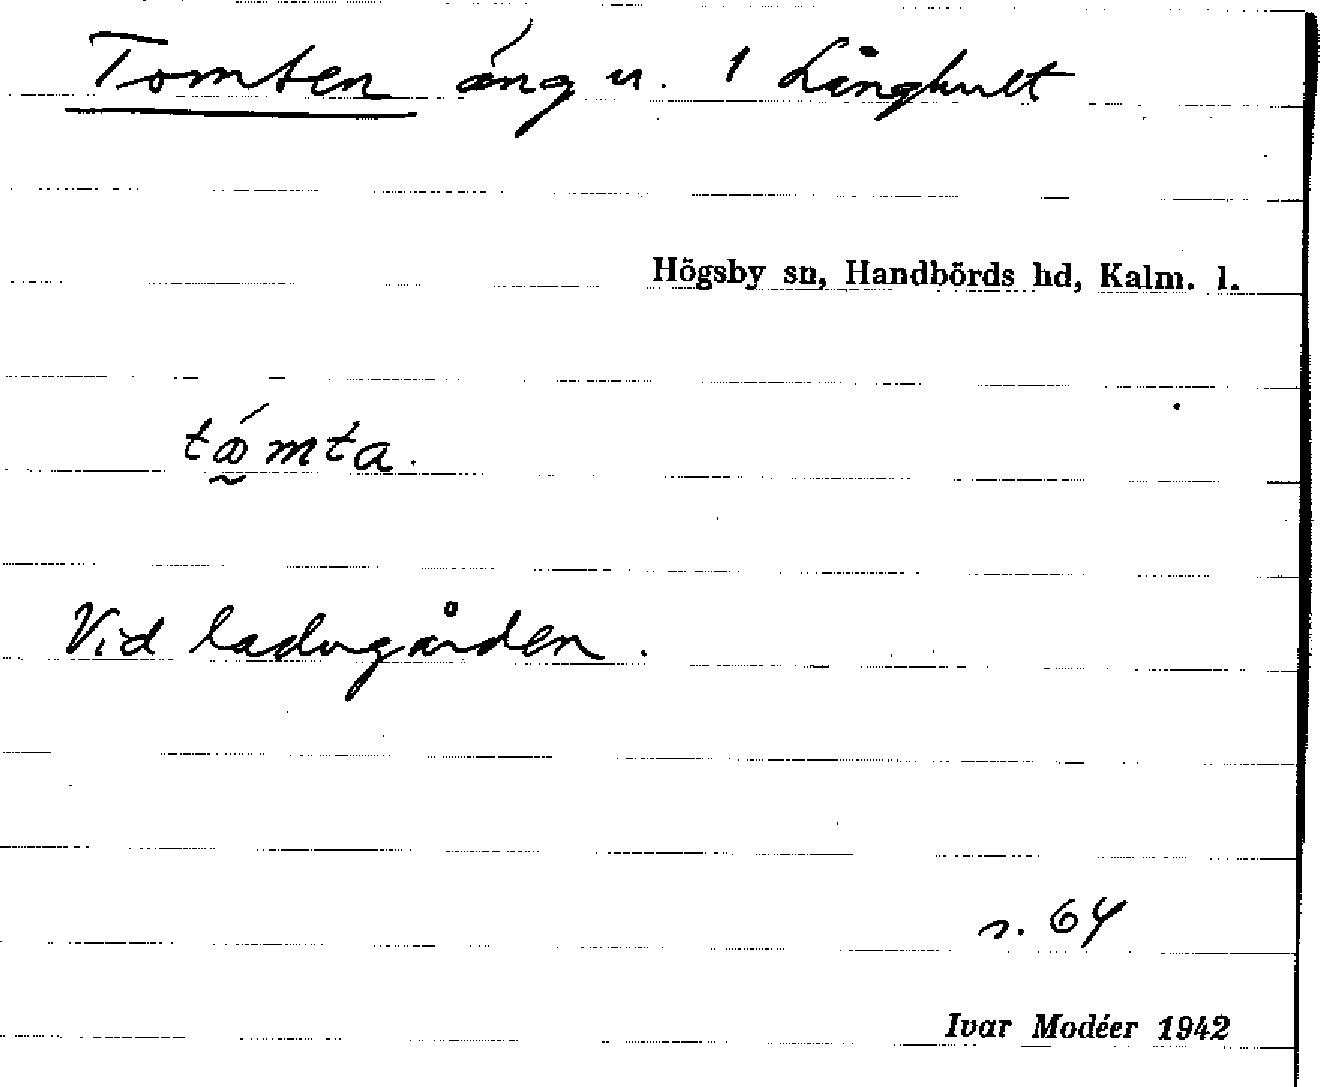 Tomten äng u. 1 Långhult
Högsby sn, Handbörds hd, Kalm. l.
tǿmta.
Vid ladugården.
s. 64
Ivar Modéer 1942